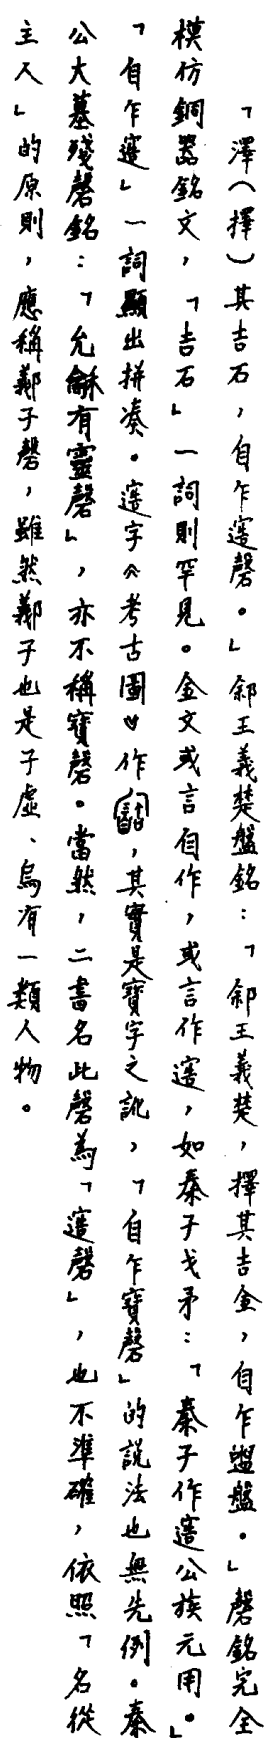 「澤(擇)其吉石,自乍磬。」䣄王義楚盤銘:「䣄王義楚,擇其吉金,自乍盥盤。」磬銘完全
模仿銅器銘文,「吉石」一詞則罕見。金文或言自作,或言作,如秦子戈矛:「秦子作公族元用。」
「自乍」一詞顯出拼凑。字《考古圖》作,其實是寶字之訛,「自乍寶磬」的說法也無先例。秦
公大墓殘磬銘:「允龢有靈磬」,亦不稱寶磬。當然,二書名此磬為「磬」,也不準確,依照「名從
主人」的原則,應稱鄴子磬,雖然鄴子也是子虛、烏有一類人物。